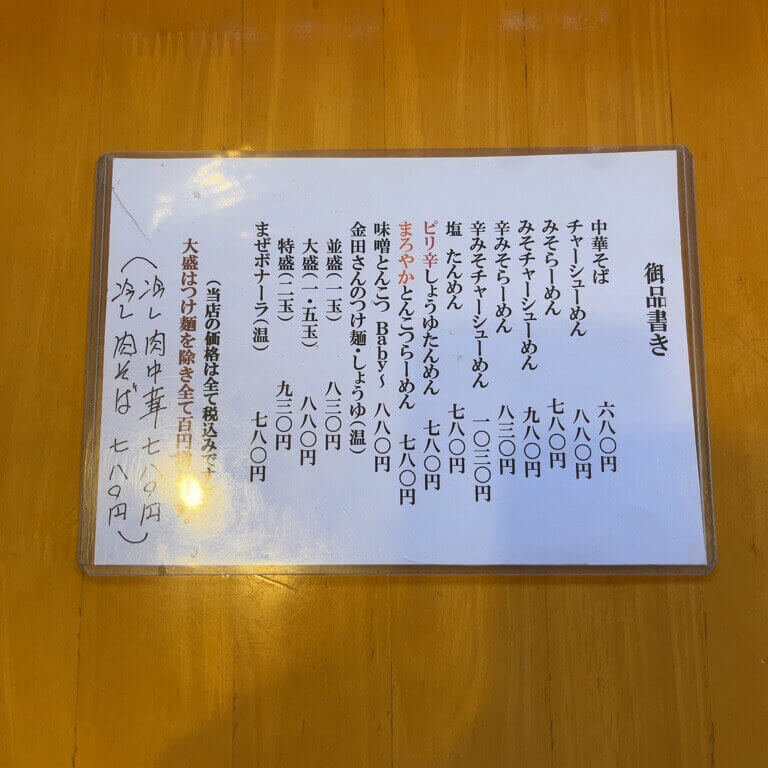 御品書き
中華そば 六八〇円
チャーシューめん 八八〇円
みそらーめん 七八〇円
みそチャーシューめん 九八〇円
辛みそらーめん 八三〇円
辛みそチャーシューめん 一〇三〇円
塩 たんめん 七八〇円
ピリ辛しょうゆたんめん 七八〇円
まろやかとんこつらーめん 七八〇円
味噌とんこつ Baby〜 八八〇円
金田さんのつけ麺・しょうゆ(温)
並盛(一玉) 八三〇円
大盛(一・五玉) 八八〇円
特盛(二玉) 九三〇円
まぜボナーラ(温) 七八〇円
(当店の価格は全て税込みです
大盛はつけ麺を除き全て百円増 す。
(冷し肉中華 七八〇円
冷し肉そば 七八〇円)